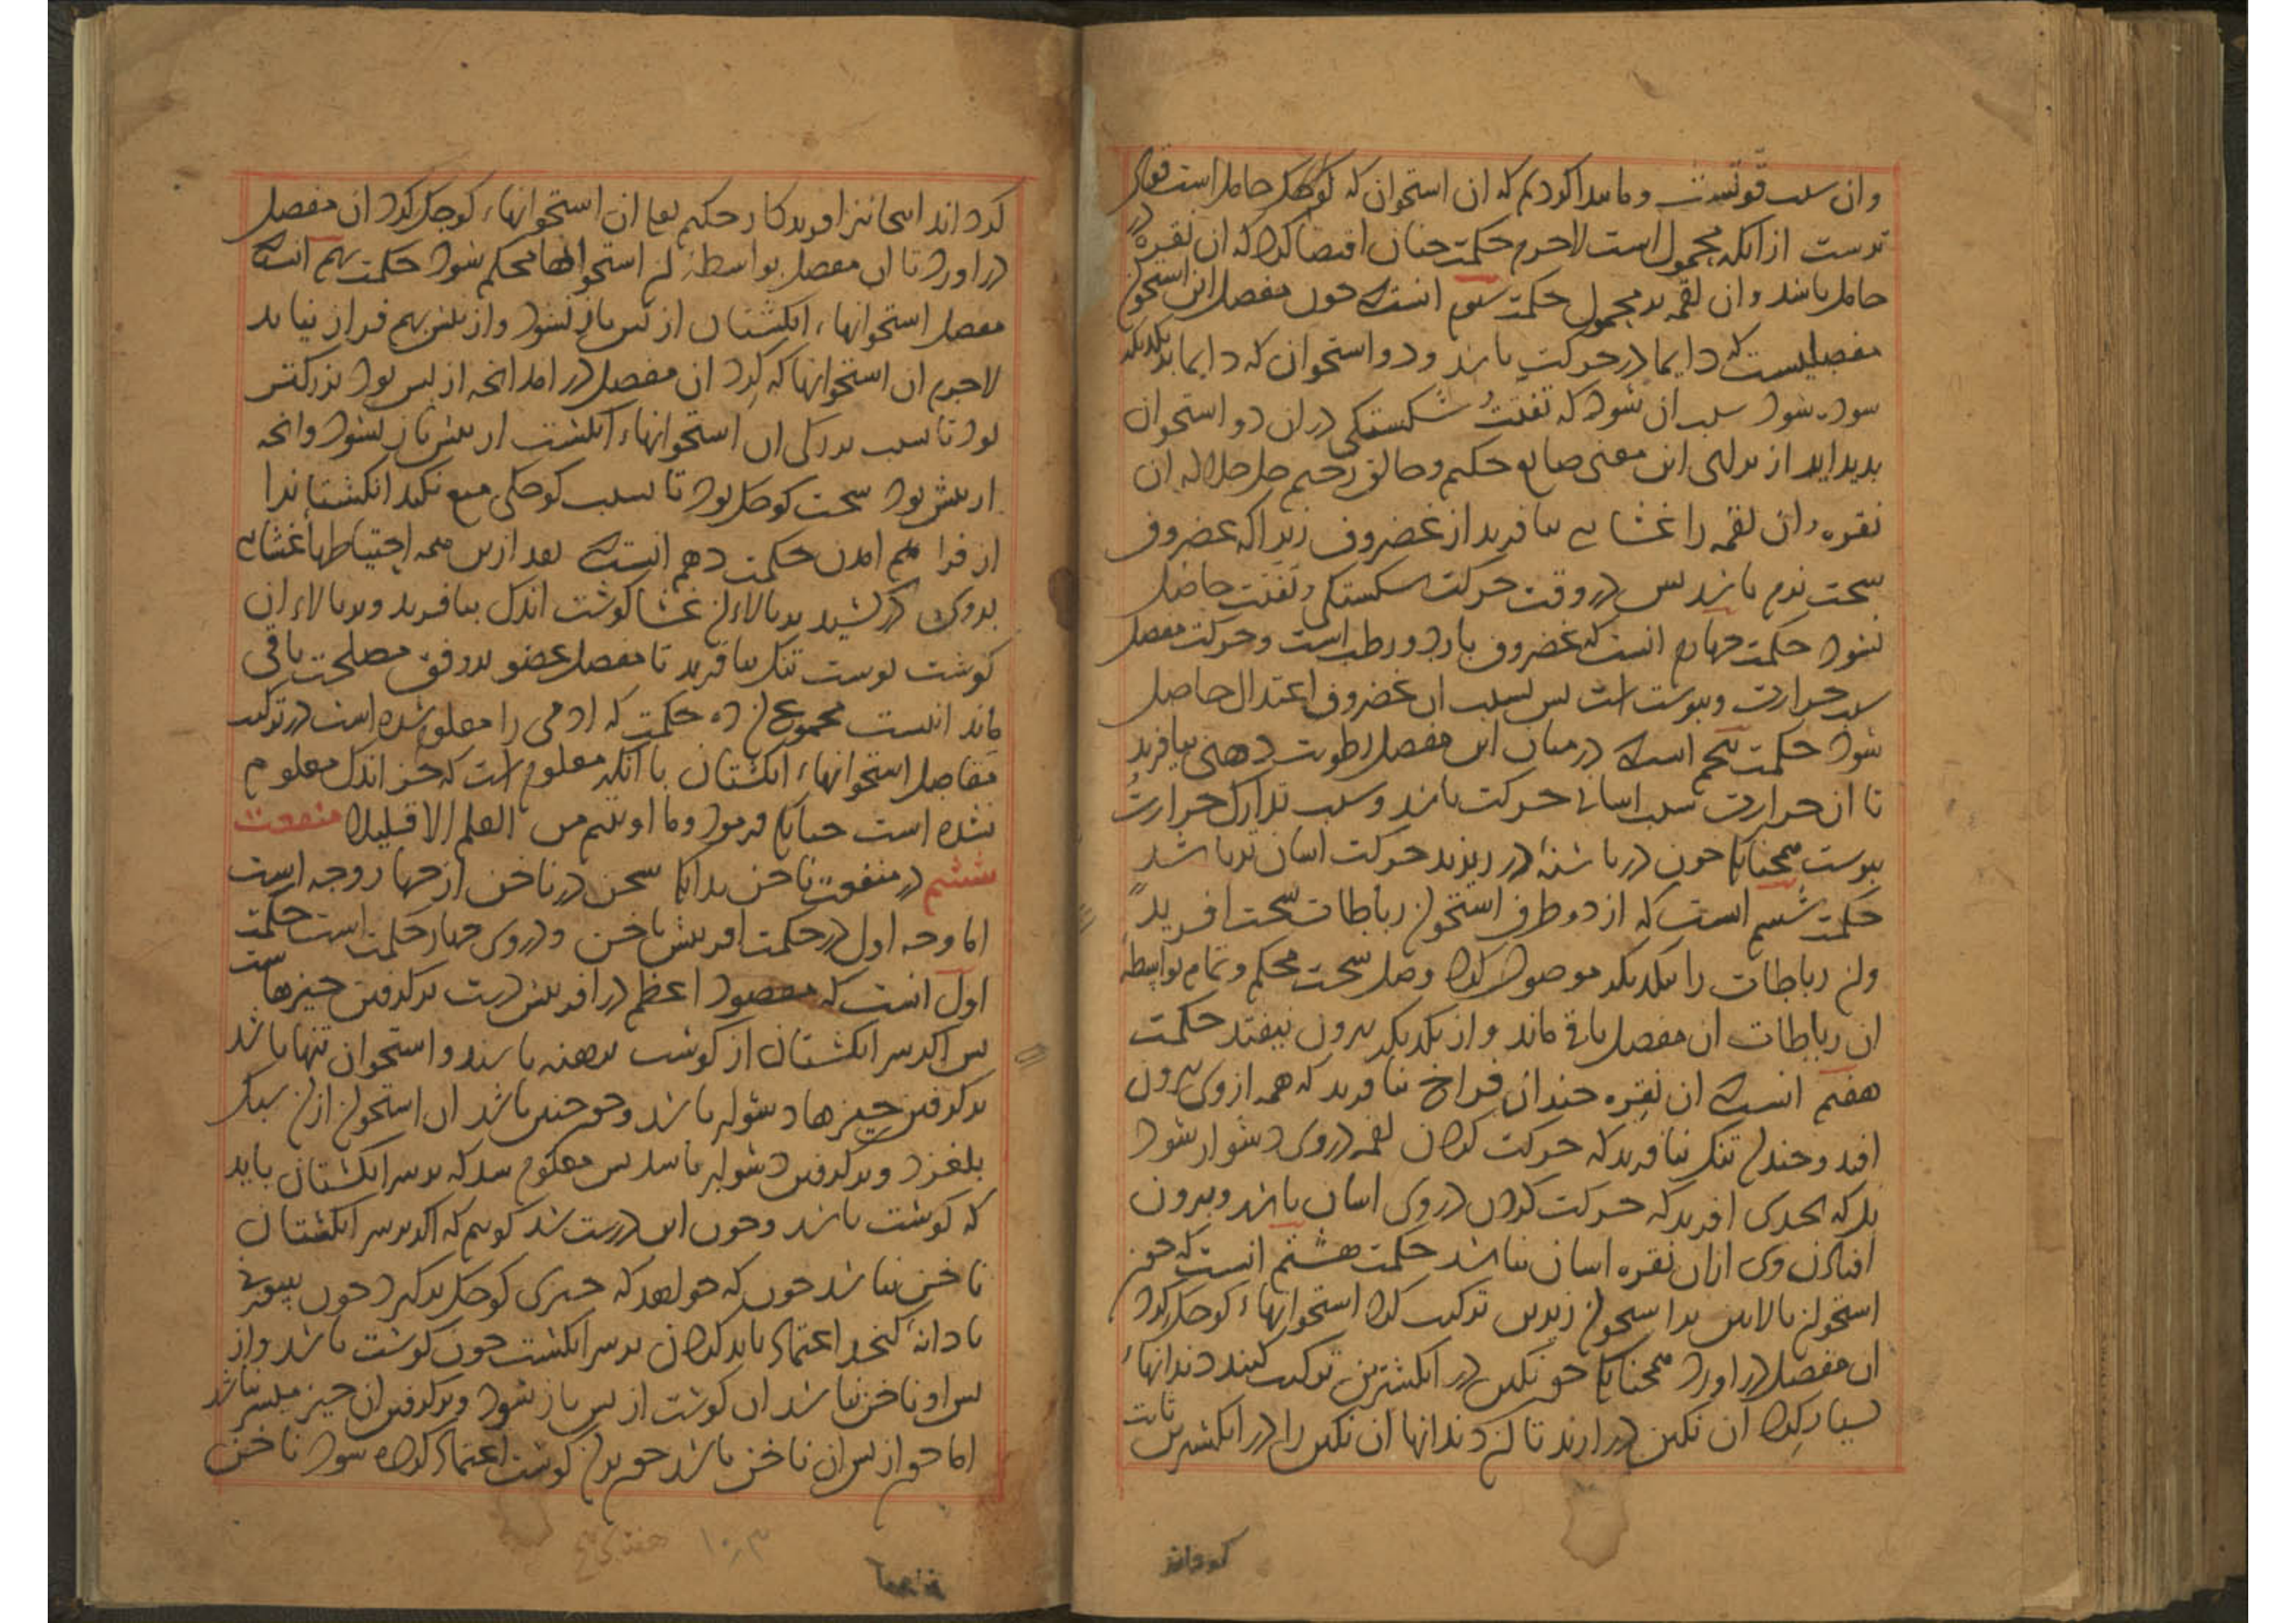 وان سبب قوتست و ما پیدا کردیم که ان استخوان که کوچک حاملست قوی
ترست از انکه محمول است لاجرم حکمت چنان اقتضا کرد که ان نقره در
حامل باشد وان لقمه بر محمول حکمت سوم انست که چون مفصل این استخوان
مفصلیست که دایما در حرکت باشد و دو استخوان که دایما بر یکدیگر
سوده شود سبب ان شود که تفتت و شکستگی در ان دو استخوان
پدید اید از برای این معنی صانع حکیم و خالق رحیم جل جلاله ان
نقره و ان لقمه را غشایی بیافرید از غضروف زیرا که غضروف
سخت نرم باشد پس در وقت حرکت شکستگی و تفتت حاصل
نشود حکمت چهارم انست که غضروف بارد و رطب است و حرکت مفصل
سبب حرارت و یبوست است پس بسبب ان غضروف اعتدال حاصل
شود حکمت پنجم انست که در میان این مفصل رطوبت دهنی بیافرید
تا ان حرارت سبب اسانی حرکت باشد و سبب تدارک حرارت
یبوست همچنانک چون در پاشنه در روغن ریزند حرکت اسان تر باشد
حکمت ششم انست که از دو طرف استخوان رباطات سخت افرید
وان رباطات را بیکدیگر موصول کرد وصل سخت محکم و تمام بواسطه
ان رباطات ان مفصل باقی ماند و از یکدیگر بیرون نیفتد حکمت
هفتم انست که ان نقره چندان فراخ نیافرید که همه از وی بیرون
افتد و چندان تنگ نیافرید که حرکت کردن لقمه در وی دشوار شود
بلکه بحدی افرید که حرکت کردن در وی اسان باشد و بیرون
افتادن وی ازان نقره اسان نباشد حکمت هشتم انست که چون
استخوان بالایین بر استخوان زیرین ترکیب کرد استخوانهاء کوچک گرد
ان مفصل در اورد همچنانک چون نگین در انگشترین ترکیب کنند دندانهاء
بسیار گرد ان نگین در ارند تا ان دندانها ان نگین را در انگشترین ثابت
گرداند
گرداند اینجا نیز افریدگار حکیم تعالی ان استخوانهاء کوچک گرد ان مفصل
در اورد تا ان مفصل بواسطه ان استخوانها محکم شود حکمت نهم انست که
مفصل استخوانهاء انگشتان از پس باز نشود و از پیش بهم فراز نیاید
لاجرم ان استخوانها که گرد ان مفصل در امد انچه از پس بود بزرگتر
بود تا سبب بزرگی ان استخوانهاء انگشت از پیش باز نشود و انچه
از پیش بود سخت کوچک بود تا بسبب کوچکی منع نکند انگشتانرا
از فراهم امدن حکمت دهم انست که بعد ازین همه احتیاطها غشایی
بروی در کشید بر بالاء ان غشا گوشت اندک بیافرید و بر بالاء ان
گوشت پوست تنک بیافرید تا مفصل عضو بر وفق مصلحت باقی
ماند اینست مجموع ان ده حکمت که ادمی را معلوم شده است در ترکیب
مفاصل استخوانهاء انگشتان با انکه معلوم است که جز اندک معلوم
نشده است چنانک فرمود وما اوتیتم من العلم الا قلیلا منفعت
ششم در منفعت ناخن بدانک سخن در ناخن از چهار وجه است
اما وجه اول در حکمت افرینش ناخن و در وی چهار حکمت است حکمت
اول انست که مقصود اعظم در افرینش دست برگرفتن چیزهاست
پس اگر سر انگشتان از گوشت برهنه باشد و استخوان تنها باشد
برگرفتن چیزها دشوار باشد و چون چنین باشد ان استخوان ازان سبک
بلغزد و برگرفتن دشوار باشد پس معلوم شد که بر سر انگشتان باید
که گوشت باشد و چون این درست شد گوییم که اگر بر سر انگشتان
ناخن نباشد چون که خواهد که چیزی کوچک برگیرد چون
یا دانه کنجد اعتماد باید کردن بر سر انگشت چون گوشت باشد و از
پس او ناخن نباشد ان گوشت از پس باز شود و برگرفتن ان چیز میسر نباشد
اما چون از پس ان ناخن باشد چون بدان گوشت اعتماد کرده شود ناخن
۱۰۳